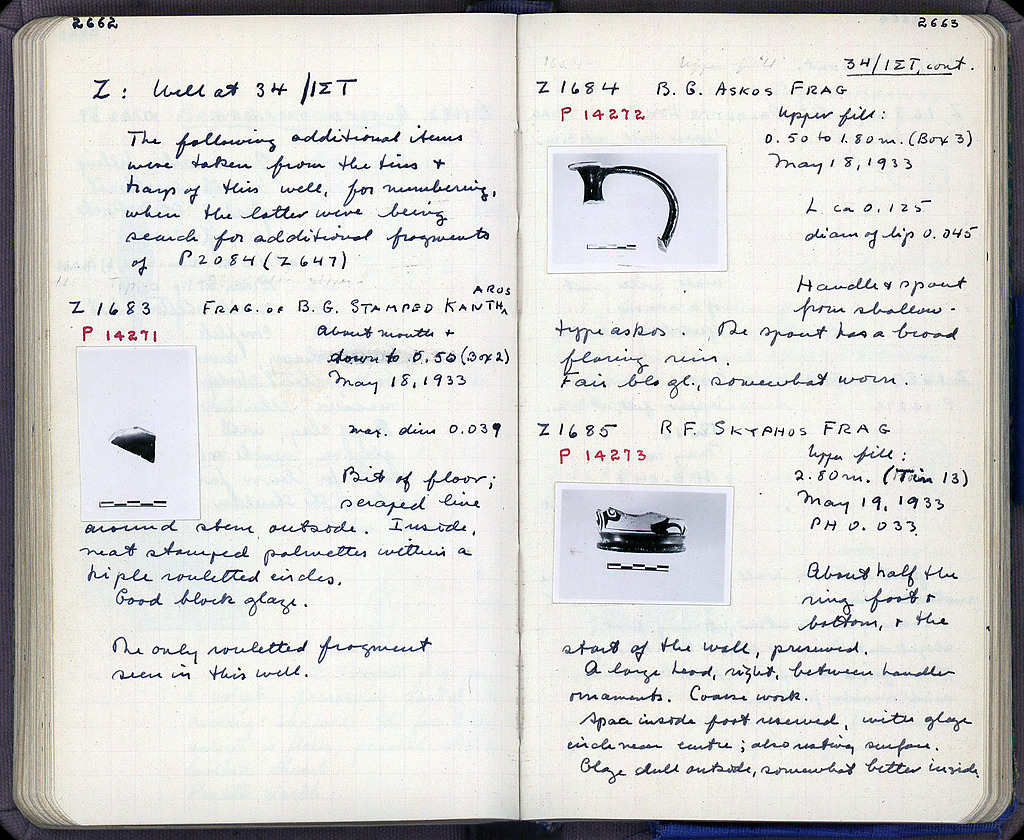 2662
Z: Well at 34/ΙΣΤ
The following additional items
were taken from the tins &
trays of this well, for numbering,
when the latter were being
search for additional fragments
of P2084 (Z647)
Z 1683 FRAG. OF B.G. STAMPED KANTHAROS
P 14271
About mouth &
down to 0.50 (Box 2)
May 18, 1933
Max. dim 0.039
Bit of floor;
scraped line
around stem outside. Inside,
neat stamped palmettes within a
triple rouletted circles.
Good black glaze.
The only rouletted fragment
seen in this well.
2663
34/ΙΣΤ, cont.
Z 1684 B.G. ASKOS FRAG
P 14272
Upper fill:
0.50 to 1.80 m. (Box 3)
May 18, 1933
L ca 0.125
diam of lip 0.045
Handle & spout
from shallow-
type askos. The spout has a broad
flaring rim.
Fair bl gl., somewhat worn.
Z 1685 R.F. SKYPHOS FRAG
P 14273
Upper fill:
2.80 m. (Tin 13)
May 19, 1933
PH 0.033
About half the
ring foot &
bottom, & the
start of the wall, preserved.
A large head, right, between handle
ornaments. Coarse work.
Space inside foot reserved, with glaze
circle near centre; also resting surface.
Glaze dull outside, somewhat better inside.